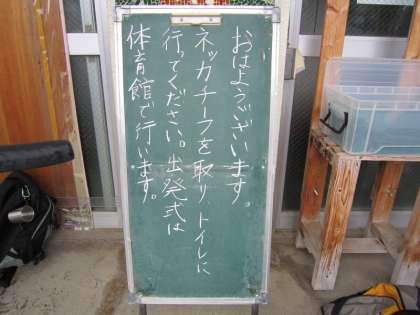 おはようございます。
ネッカチーフを取り、トイレに
行ってください。出発式は
体育館で行います。